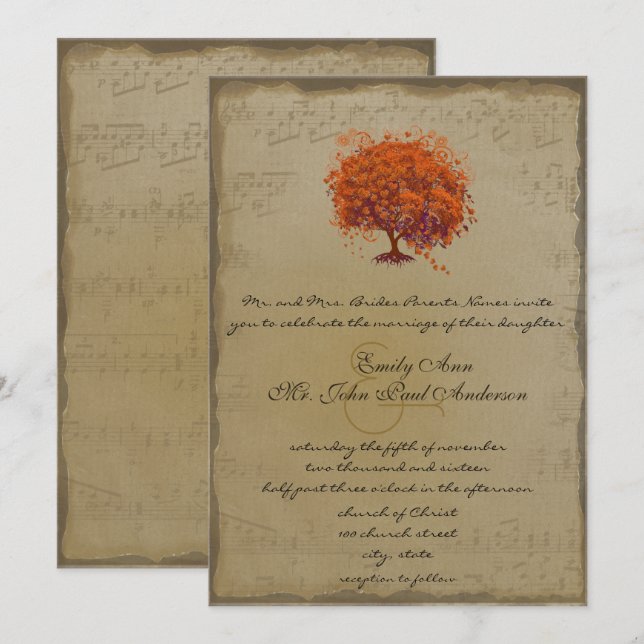 Mr. and Mrs. Brides Parents Names invite
you to celebrate the marriage of their daughter
Emily Ann
&
Mr. John Paul Anderson
saturday the fifth of november
two thousand and sixteen
half past three o'clock in the afternoon
church of Christ
100 church street
city, state
reception to follow